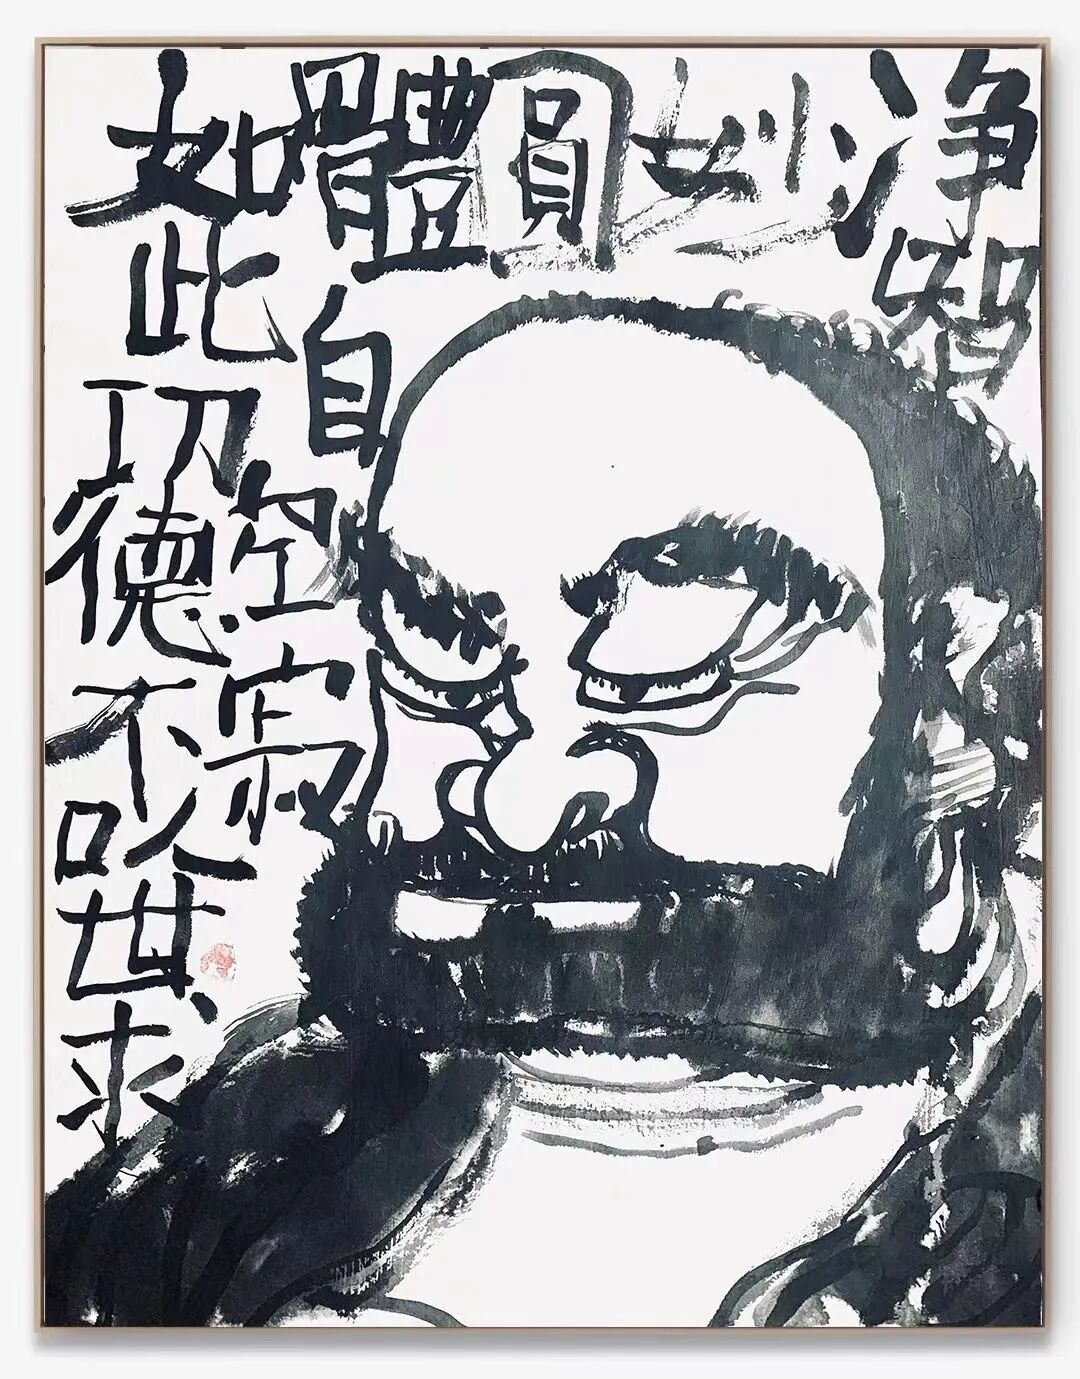 净智
妙
圓
體自空寂
如此功德不以世求